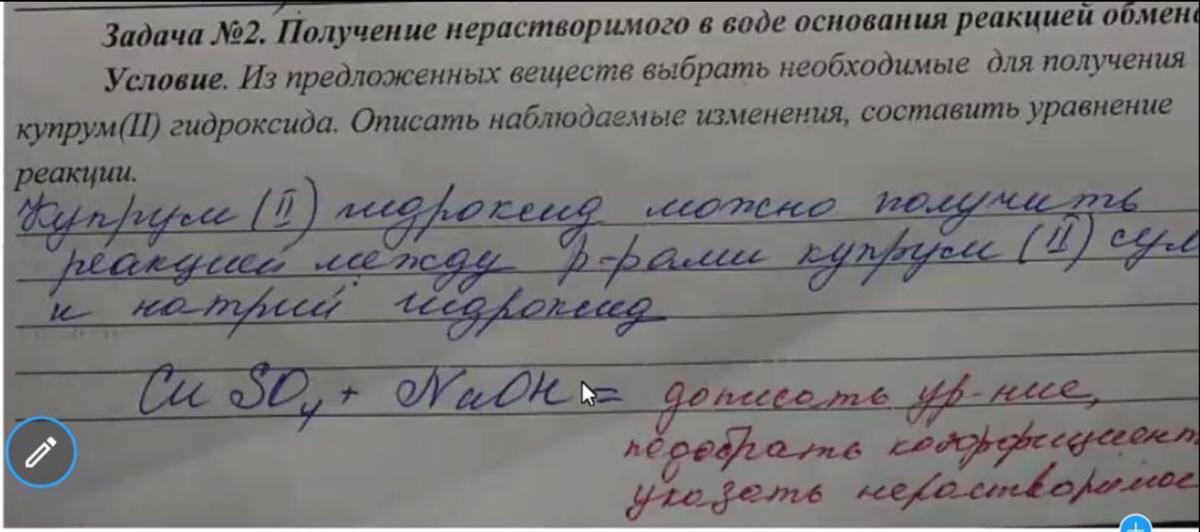 Задача №2. Получение нерастворимого в воде основания реакцией обмен
Условие. Из предложенных веществ выбрать необходимые для получения
купрум(II) гидроксида. Описать наблюдаемые изменения, составить уравнение
реакции.
Купрум (II) гидроксид можно получить
реакцией между р-рами купрум (II) сул
и натрий гидроксид
CuSO₄ + NaOH =
дописать ур-ние,
подобрать коэффициент
указать нерастворимос